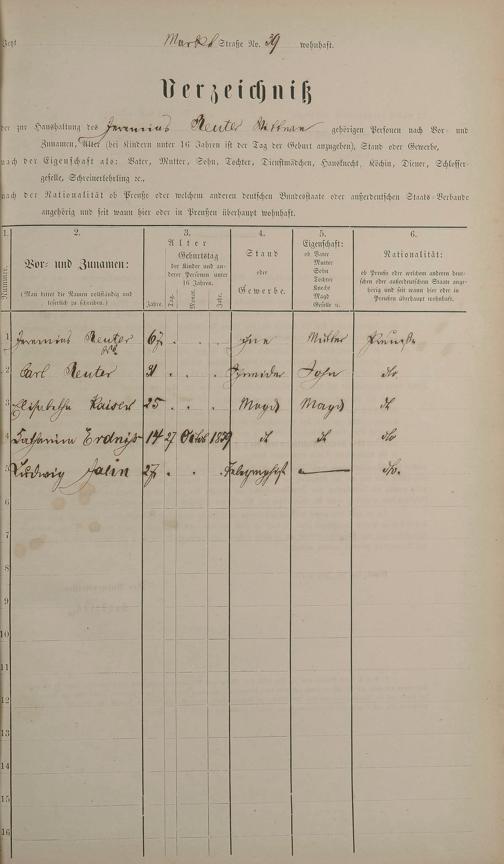 Jetzt Markt Straße No. 39 wohnhaft.
Verzeichniß
der zur Haushaltung des Jeremias Reuter Wittwe gehörigen Personen nach Vor- und
Zunamen, Alter (bei Kindern unter 16 Jahren ist der Tag der Geburt anzugeben), Stand oder Gewerbe,
nach der Eigenschaft als: Vater, Mutter, Sohn, Tochter, Dienstmädchen, Hausknecht, Köchin, Diener, Schlosser-
geselle, Schreinerlehrling ꝛc.,
nach der Nationalität ob Preuße oder welchem anderen deutschen Bundesstaate oder außerdeutschen Staats-Verbande
angehörig und seit wann hier oder in Preußen überhaupt wohnhaft.
1. 2. 3. 4. 5. 6.
Nummer.
Vor- und Zunamen:
(Man bittet die Namen vollständig und
leserlich zu schreiben.)
Alter
Geburtstag
der Kinder und an-
derer Personen unter
16 Jahren.
Jahre. Tag. Monat. Jahr.
Stand
oder
Gewerbe.
Eigenschaft:
ob Vater
Mutter
Sohn
Tochter
Knecht
Magd
Geselle u.
Nationalität:
ob Preuße oder welchem anderen deut-
schen oder außerdeutschen Staate ange-
hörig und seit wann hier oder in
Preußen überhaupt wohnhaft.
1 Jeremias Reuter 67 ohne Mutter Preuße
2 Carl Reuter Schneider Sohn do
3 Elisabetha Kaiser 25 Magd Magd do
4 Catharina 14 27 Octob 1859 do do do
5 Ludwig 27 Telegraphist do.
6
7
8
9
10
11
12
13
14
15
16